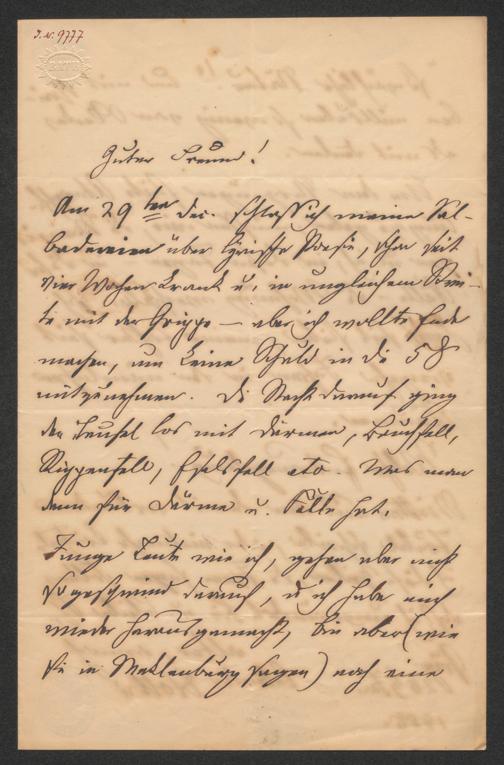 I. N. 9777
BATH
Guter Freund!
Am 29ten Dec. schloß ich meine Sal-
badereien über lyrische Poesie, schon seit
vier Wochen krank u. in ungleichem Strei-
te mit der Grippe — aber ich wollte Ende
machen, um keine Schuld in die 58
mitzunehmen. Die Nacht darauf ging
der Teufel los mit Därmen, Bauchfell,
Rippenfell, Eselsfell etc. Was man
denn für Därme u. Felle hat.
Junge Leute wie ich, gehen aber nicht
so geschwind darauf, u ich habe mich
wieder herausgemacht, bin aber (wie
sie in Meklenburg sagen) noch eine